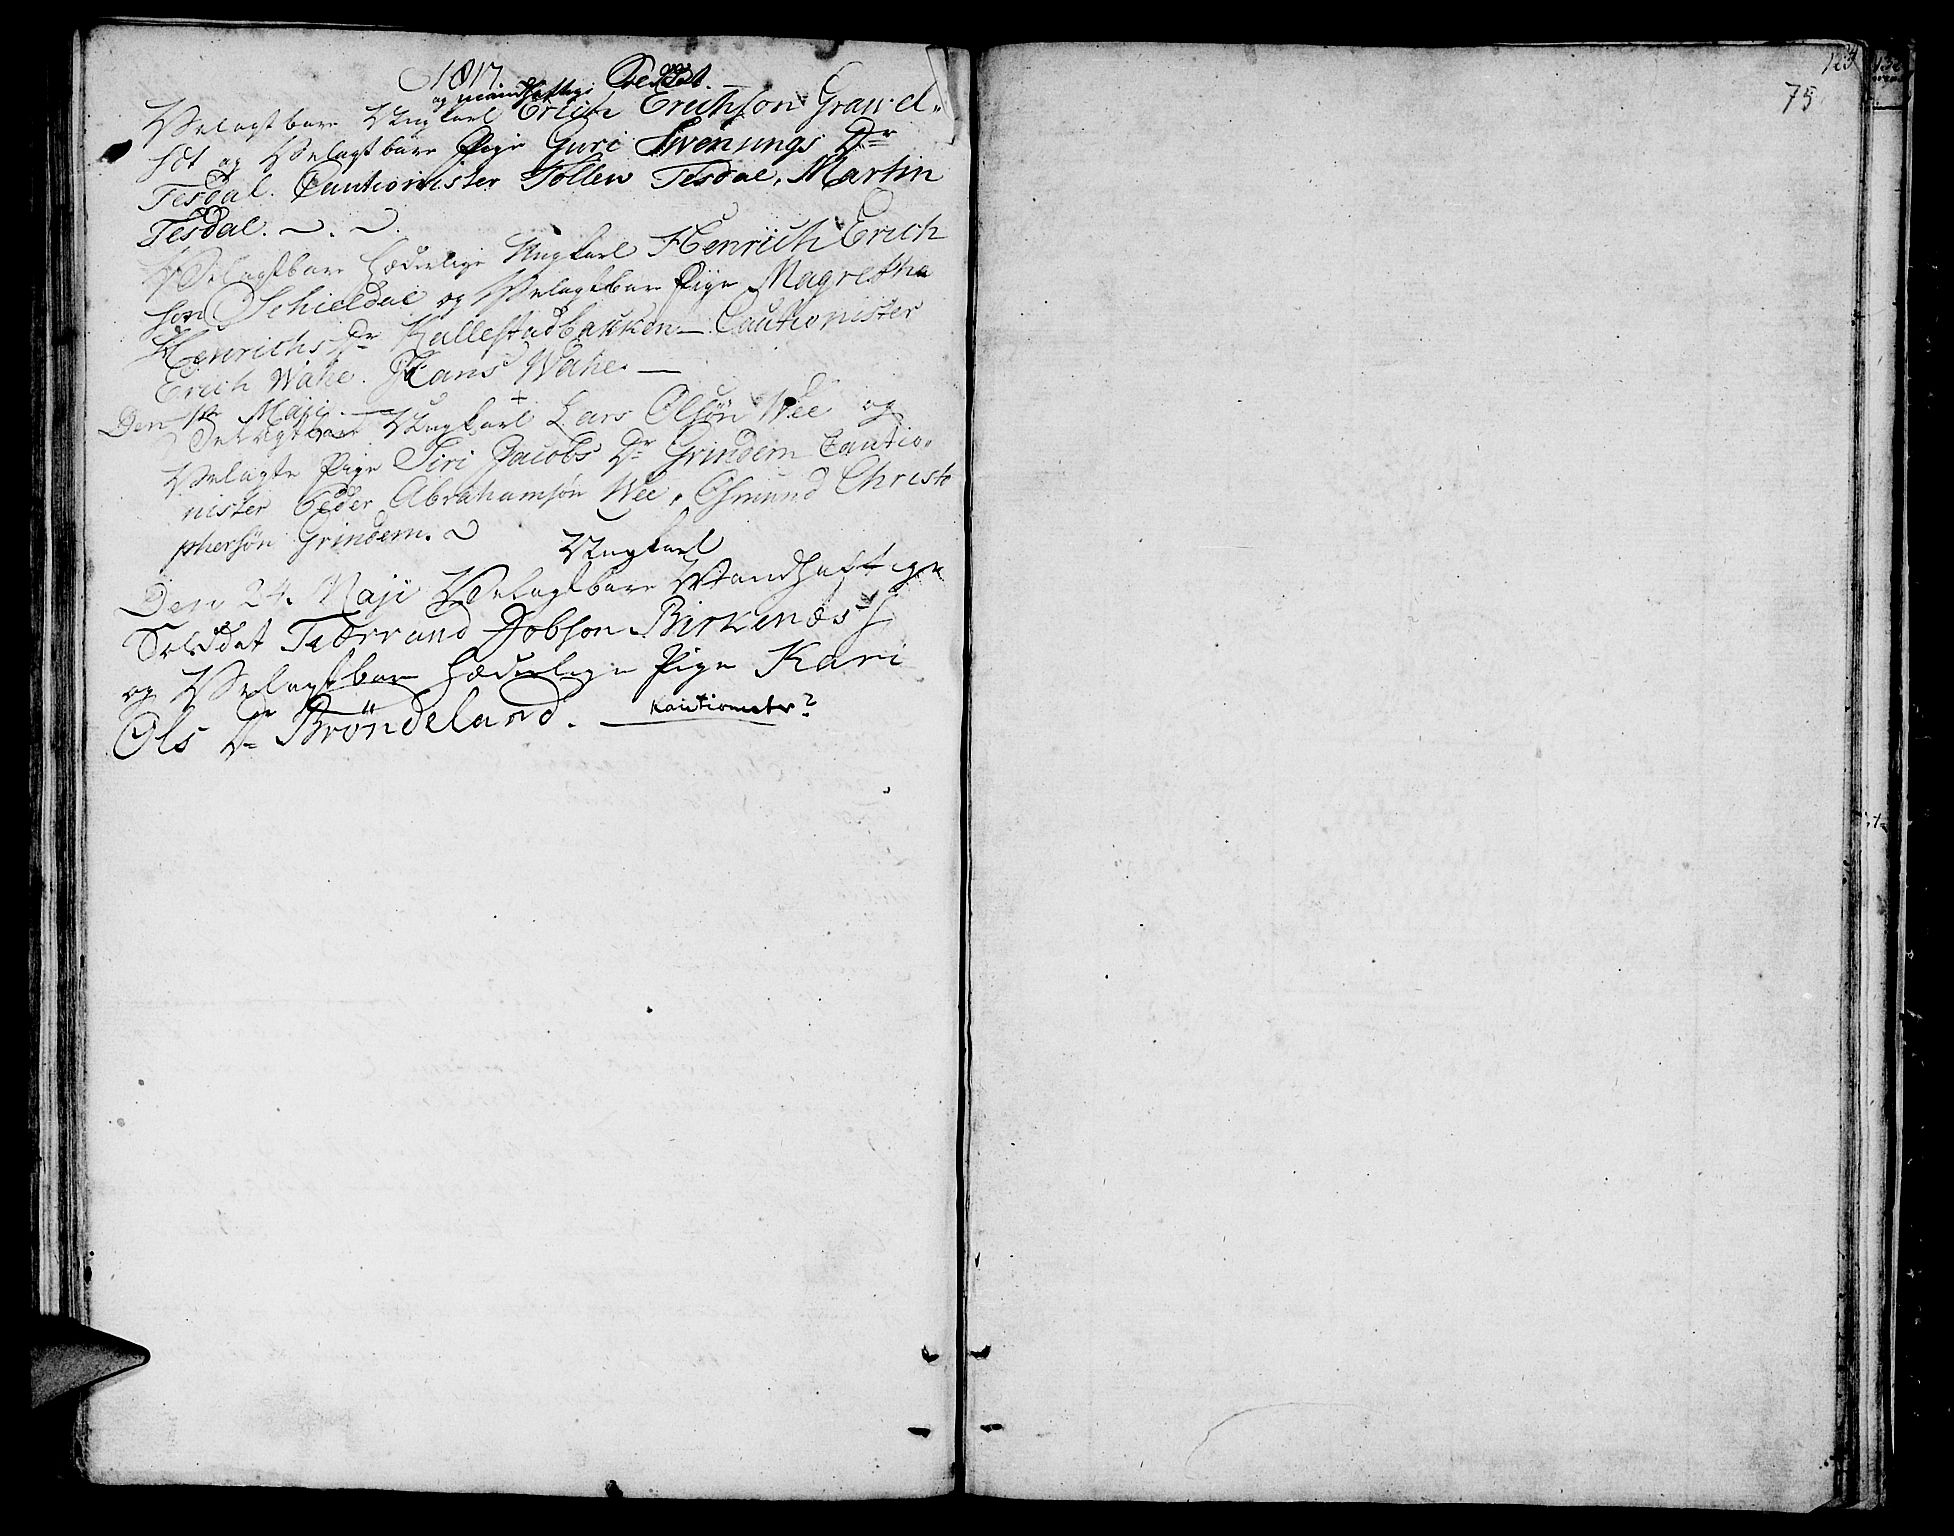 1817
og mandhaftige Soldat.
Velagtbare Ungkarl Erich Erichson Grawd-
og Velagtbare Pige Guri Svenungs Dr
Tesdal. Cautionister Tollew Tesdal, Martin
Tesdal.
Velagtbare hæderlige Ungkarl Henrich Erich
søn Schieldal og Velagtbare Pige Magretha
Henrichs Dr Kallestadbakken - Cautionister
Erich Wahe. Hans Wahe. -
Den 1te Maji. -
Velagtbare Ungkarl Lars Olsøn Wee og
Velagte Pige Siri Jacobs Dr Grindem Cautio-
nister Peder Abrahamsøn Wee, Osmund Christo
phersøn Grindem.
Ungkarl
Den 24. Maji Velagtbare Mandhaftige
Soldat Tiærrand Jobson Birkenæs
og Velagtbare hæderlige Pige Kari
Ols Dr Brøndeland. - Kautionister?
123
75